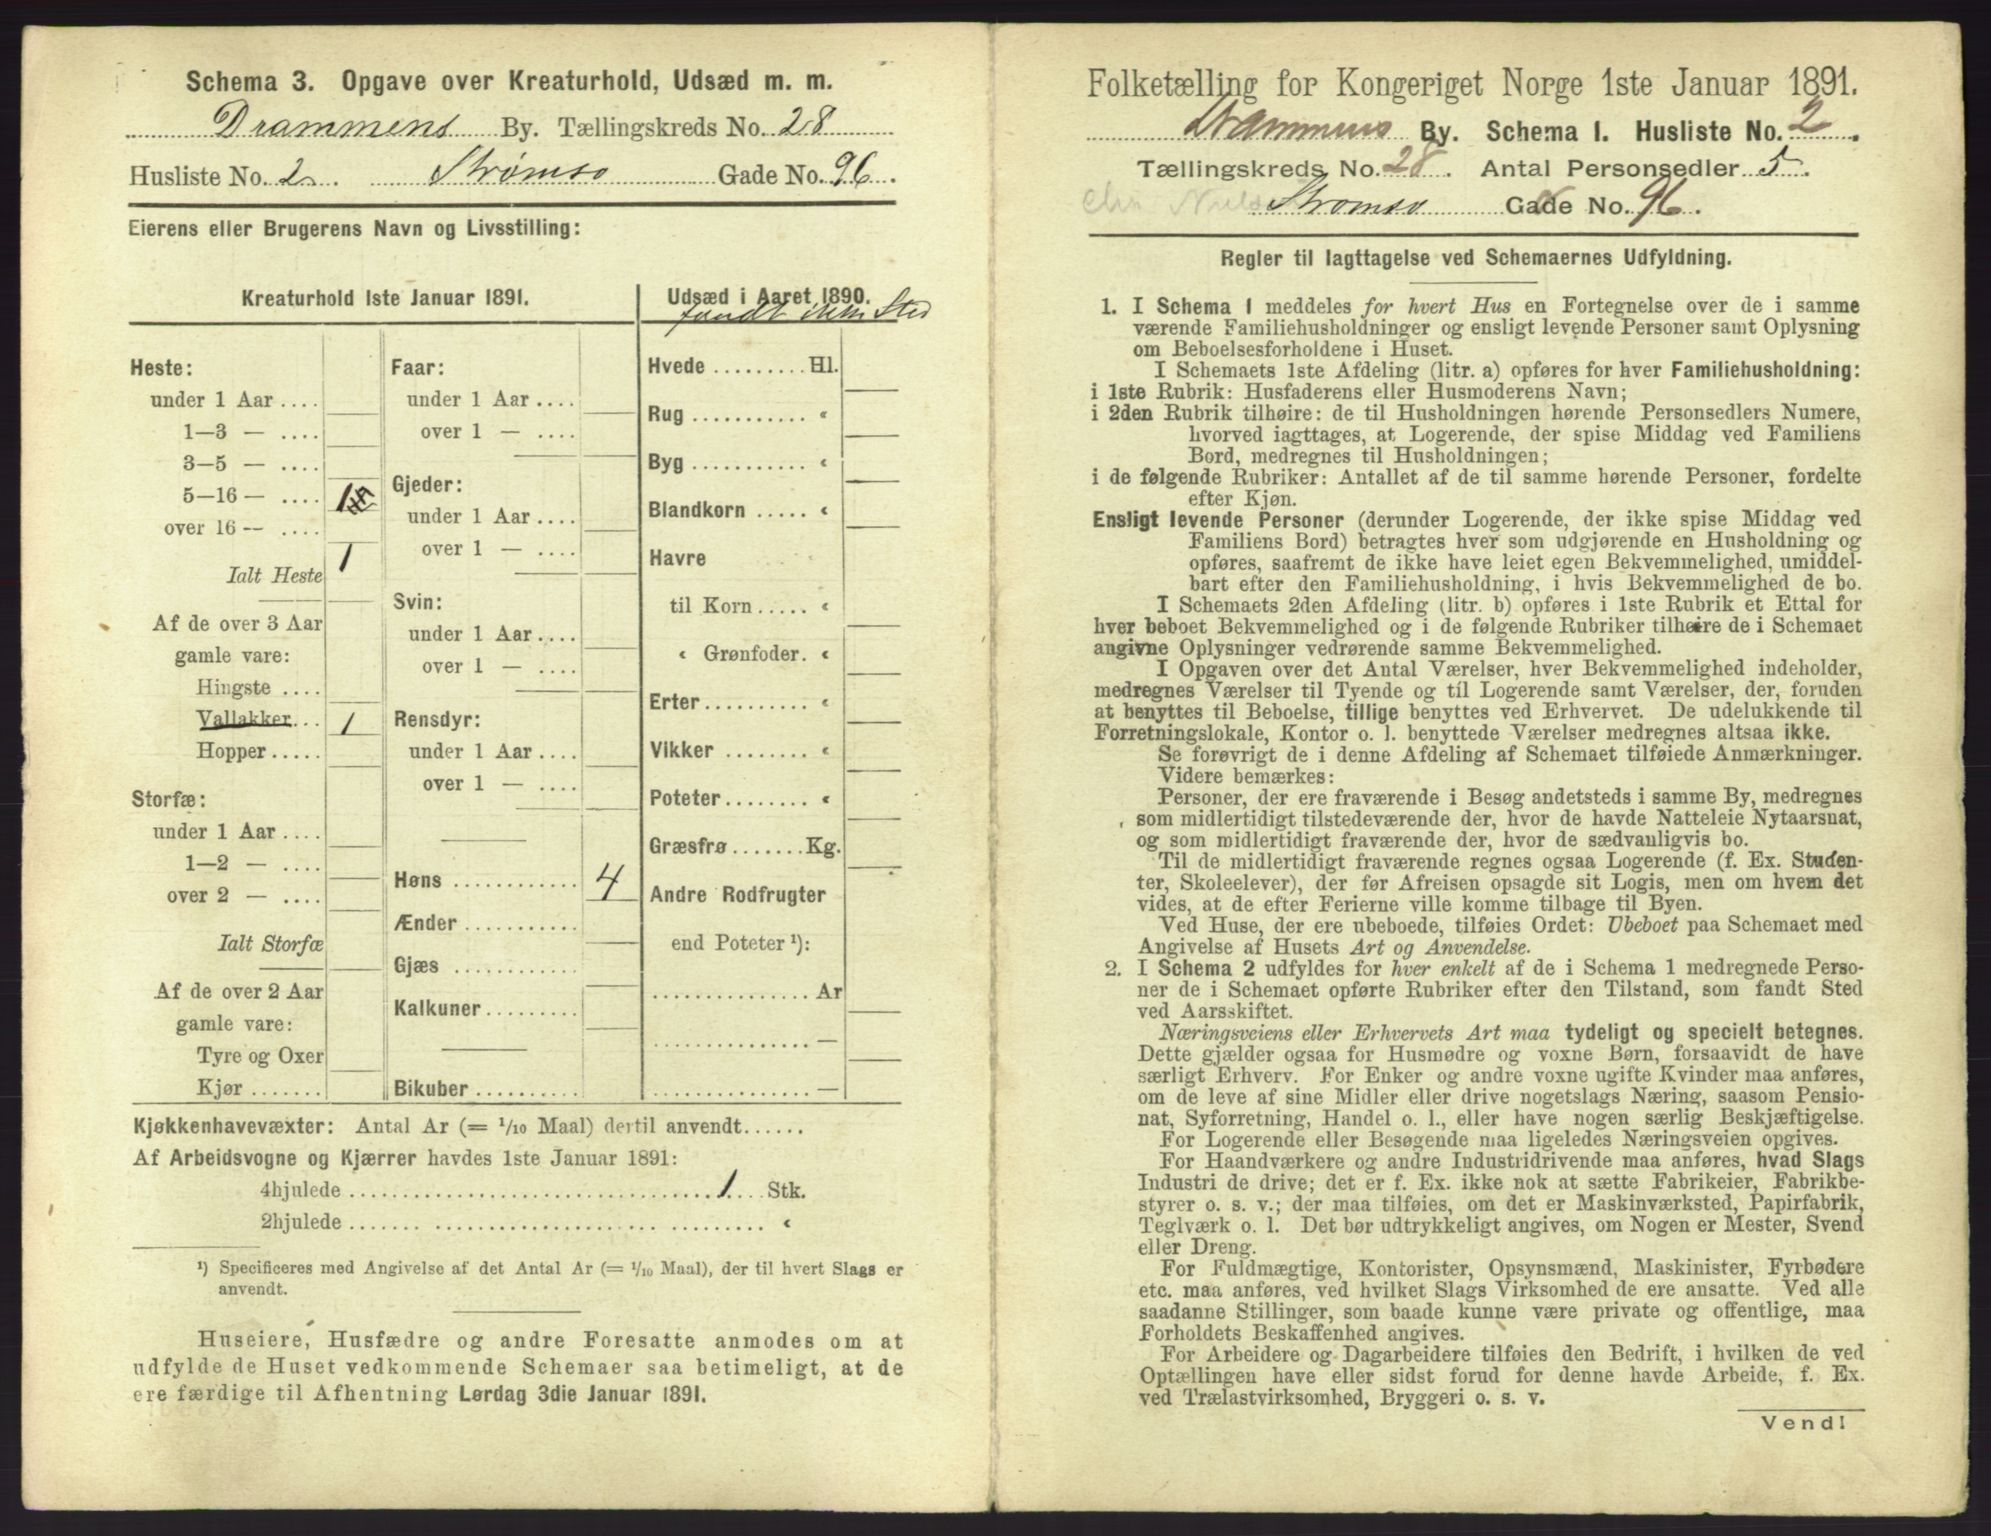 Schema 3. Opgave over Kreaturhold, Udsæd m. m.
Drammens By. Tællingskreds No. 28
Husliste No. 2. Strømsø Gade No. 96.
Eierens eller Brugerens Navn og Livsstilling:
Kreaturhold 1ste Januar 1891.
Heste:
under 1 Aar ....
1—3 — ....
3—5 — ....
5—16 — .... 1
over 16 — ....
Ialt Heste 1
Af de over 3 Aar
gamle vare:
Hingste ....
Vallakker... 1
Hopper.....
Storfæ:
under 1 Aar ....
1—2 — ....
over 2 — ....
Ialt Storfæ
Af de over 2 Aar
gamle vare:
Tyre og Oxer
Kjør.......
Faar:
under 1 Aar ....
over 1 — ....
Gjeder:
under 1 Aar ....
over 1 — ....
Svin:
under 1 Aar ....
over 1 — ....
Rensdyr:
under 1 Aar ....
over 1 — ....
Høns ............ 4
Ænder ...........
Gjæs ............
Kalkuner.........
Bikuber..........
Udsæd i Aaret 1890.
fandt ikke Sted
Hvede ......... Hl.
Rug ........... «
Byg ........... «
Blandkorn ..... «
Havre
til Korn ..... «
« Grønfoder. «
Erter.......... «
Vikker ........ «
Poteter........ «
Græsfrø ....... Kg.
Andre Rodfrugter
end Poteter ¹):
............... Ar
............... —
............... —
Kjøkkenhavevæxter: Antal Ar (= 1/10 Maal) dertil anvendt......
Af Arbeidsvogne og Kjærrer havdes 1ste Januar 1891:
4hjulede .................................... 1 Stk.
2hjulede .................................... «
¹) Specificeres med Angivelse af det Antal Ar (= 1/10 Maal), der til hvert Slags er
anvendt.
Huseiere, Husfædre og andre Foresatte anmodes om at
udfylde de Huset vedkommende Schemaer saa betimeligt, at de
ere færdige til Afhentning Lørdag 3die Januar 1891.
Folketælling for Kongeriget Norge 1ste Januar 1891.
Drammens By. Schema 1. Husliste No. 2.
Tællingskreds No. 28. Antal Personsedler 5.
Strømsø Gade No. 96.
Regler til Iagttagelse ved Schemaernes Udfyldning.
1. I Schema 1 meddeles for hvert Hus en Fortegnelse over de i samme
værende Familiehusholdninger og ensligt levende Personer samt Oplysning
om Beboelsesforholdene i Huset.
I Schemaets 1ste Afdeling (litr. a) opføres for hver Familiehusholdning:
i 1ste Rubrik: Husfaderens eller Husmoderens Navn;
i 2den Rubrik tilhøire: de til Husholdningen hørende Personsedlers Numere,
hvorved iagttages, at Logerende, der spise Middag ved Familiens
Bord, medregnes til Husholdningen;
i de følgende Rubriker: Antallet af de til samme hørende Personer, fordelte
efter Kjøn.
Ensligt levende Personer (derunder Logerende, der ikke spise Middag ved
Familiens Bord) betragtes hver som udgjørende en Husholdning og
opføres, saafremt de ikke have leiet egen Bekvemmelighed, umiddel-
bart efter den Familiehusholdning, i hvis Bekvemmelighed de bo.
I Schemaets 2den Afdeling (litr. b) opføres i 1ste Rubrik et Ettal for
hver beboet Bekvemmelighed og i de følgende Rubriker tilhøire de i Schemaet
angivne Oplysninger vedrørende samme Bekvemmelighed.
I Opgaven over det Antal Værelser, hver Bekvemmelighed indeholder,
medregnes Værelser til Tyende og til Logerende samt Værelser, der, foruden
at benyttes til Beboelse, tillige benyttes ved Erhvervet. De udelukkende til
Forretningslokale, Kontor o. l. benyttede Værelser medregnes altsaa ikke.
Se forøvrigt de i denne Afdeling af Schemaet tilføiede Anmærkninger.
Videre bemærkes:
Personer, der ere fraværende i Besøg andetsteds i samme By, medregnes
som midlertidigt tilstedeværende der, hvor de havde Natteleie Nytaarsnat,
og som midlertidigt fraværende der, hvor de sædvanligvis bo.
Til de midlertidigt fraværende regnes ogsaa Logerende (f. Ex. Studen-
ter, Skoleelever), der før Afreisen opsagde sit Logis, men om hvem det
vides, at de efter Ferierne ville komme tilbage til Byen.
Ved Huse, der ere ubeboede, tilføies Ordet: Ubeboet paa Schemaet med
Angivelse af Husets Art og Anvendelse.
2. I Schema 2 udfyldes for hver enkelt af de i Schema 1 medregnede Perso-
ner de i Schemaet opførte Rubriker efter den Tilstand, som fandt Sted
ved Aarsskiftet.
Næringsveiens eller Erhvervets Art maa tydeligt og specielt betegnes.
Dette gjælder ogsaa for Husmødre og voxne Børn, forsaavidt de have
særligt Erhverv. For Enker og andre voxne ugifte Kvinder maa anføres,
om de leve af sine Midler eller drive nogetslags Næring, saasom Pensio-
nat, Syforretning, Handel o. l., eller have nogen særlig Beskjæftigelse.
For Logerende eller Besøgende maa ligeledes Næringsveien opgives.
For Haandværkere og andre Industridrivende maa anføres, hvad Slags
Industri de drive; det er f. Ex. ikke nok at sætte Fabrikeier, Fabrikbe-
styrer o. s. v.; der maa tilføies, om det er Maskinværksted, Papirfabrik,
Teglværk o. l. Det bør udtrykkeligt angives, om Nogen er Mester, Svend
eller Dreng.
For Fuldmægtige, Kontorister, Opsynsmænd, Maskinister, Fyrbødere
etc. maa anføres, ved hvilket Slags Virksomhed de ere ansatte. Ved alle
saadanne Stillinger, som baade kunne være private og offentlige, maa
Forholdets Beskaffenhed angives.
For Arbeidere og Dagarbeidere tilføies den Bedrift, i hvilken de ved
Optællingen have eller sidst forud for denne havde Arbeide, f. Ex.
ved Trælastvirksomhed, Bryggeri o. s. v.
Vend!